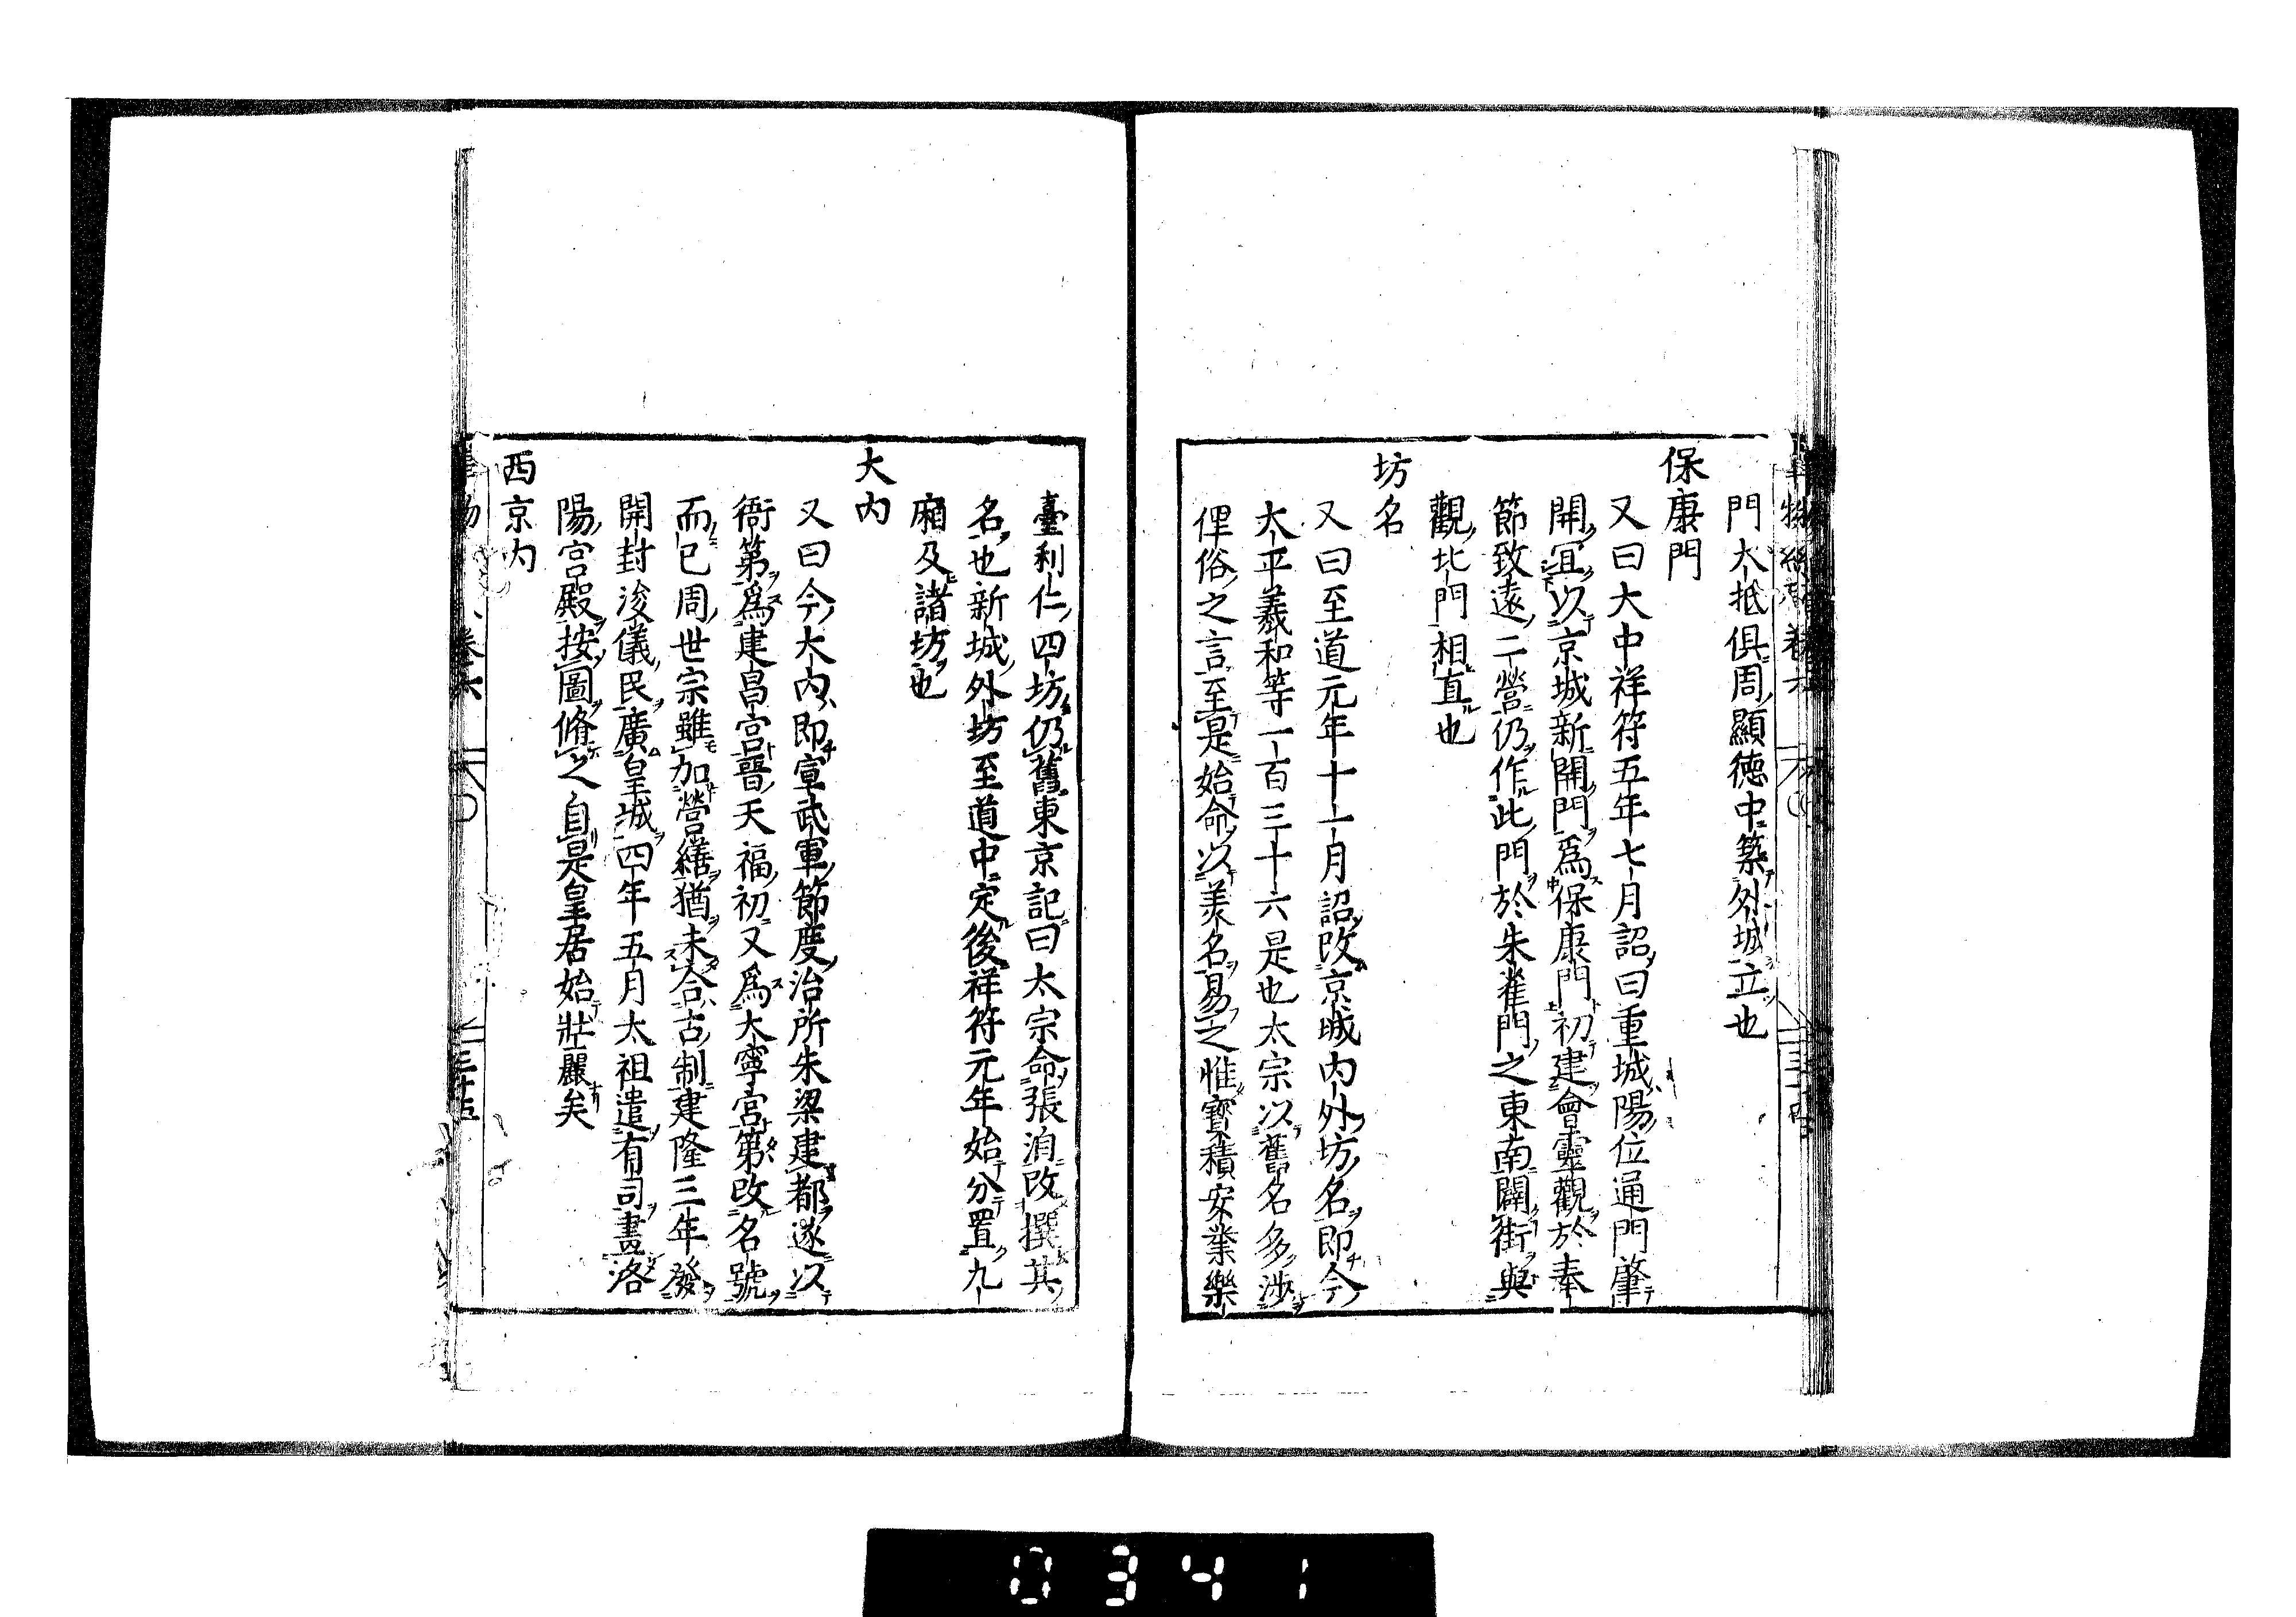 門大抵俱周顯德中築外城立也
保康門
又曰大中祥符五年七月詔曰重城陽位通門肇
開冝以京城新開門爲保康門初建會靈觀於奉
節致遠二營仍作此門於朱雀門之東南闢街與
觀北門相直也
坊名
又曰至道元年十一月詔改京城内外坊名即今
太平義和等一百三十六是也太宗以舊名多涉
俚俗之言至是始命以美名易之惟寶積安業樂
臺利仁四坊仍舊東京記曰太宗命張洎改撰其
名也新城外坊至道中定後祥符元年始分置九
廂及諸坊也
大内
又曰今大内即宣武軍節度治所朱梁建都遂以
衙第爲建昌宮晉天福初又爲大寧宮第改名號
而已周世宗雖加營繕猶未合古制建隆三年發
開封浚儀民廣皇城四年五月太祖遣有司畫洛
陽宮殿按圖脩之自是皇居始壯麗矣
西京内
0341